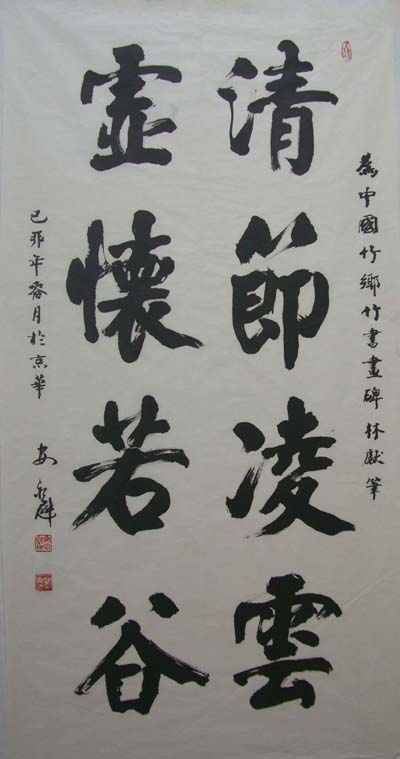 為中國竹鄉竹書畫碑林獻筆
清節凌雲
虚懷若谷
己卯年月於京華
安